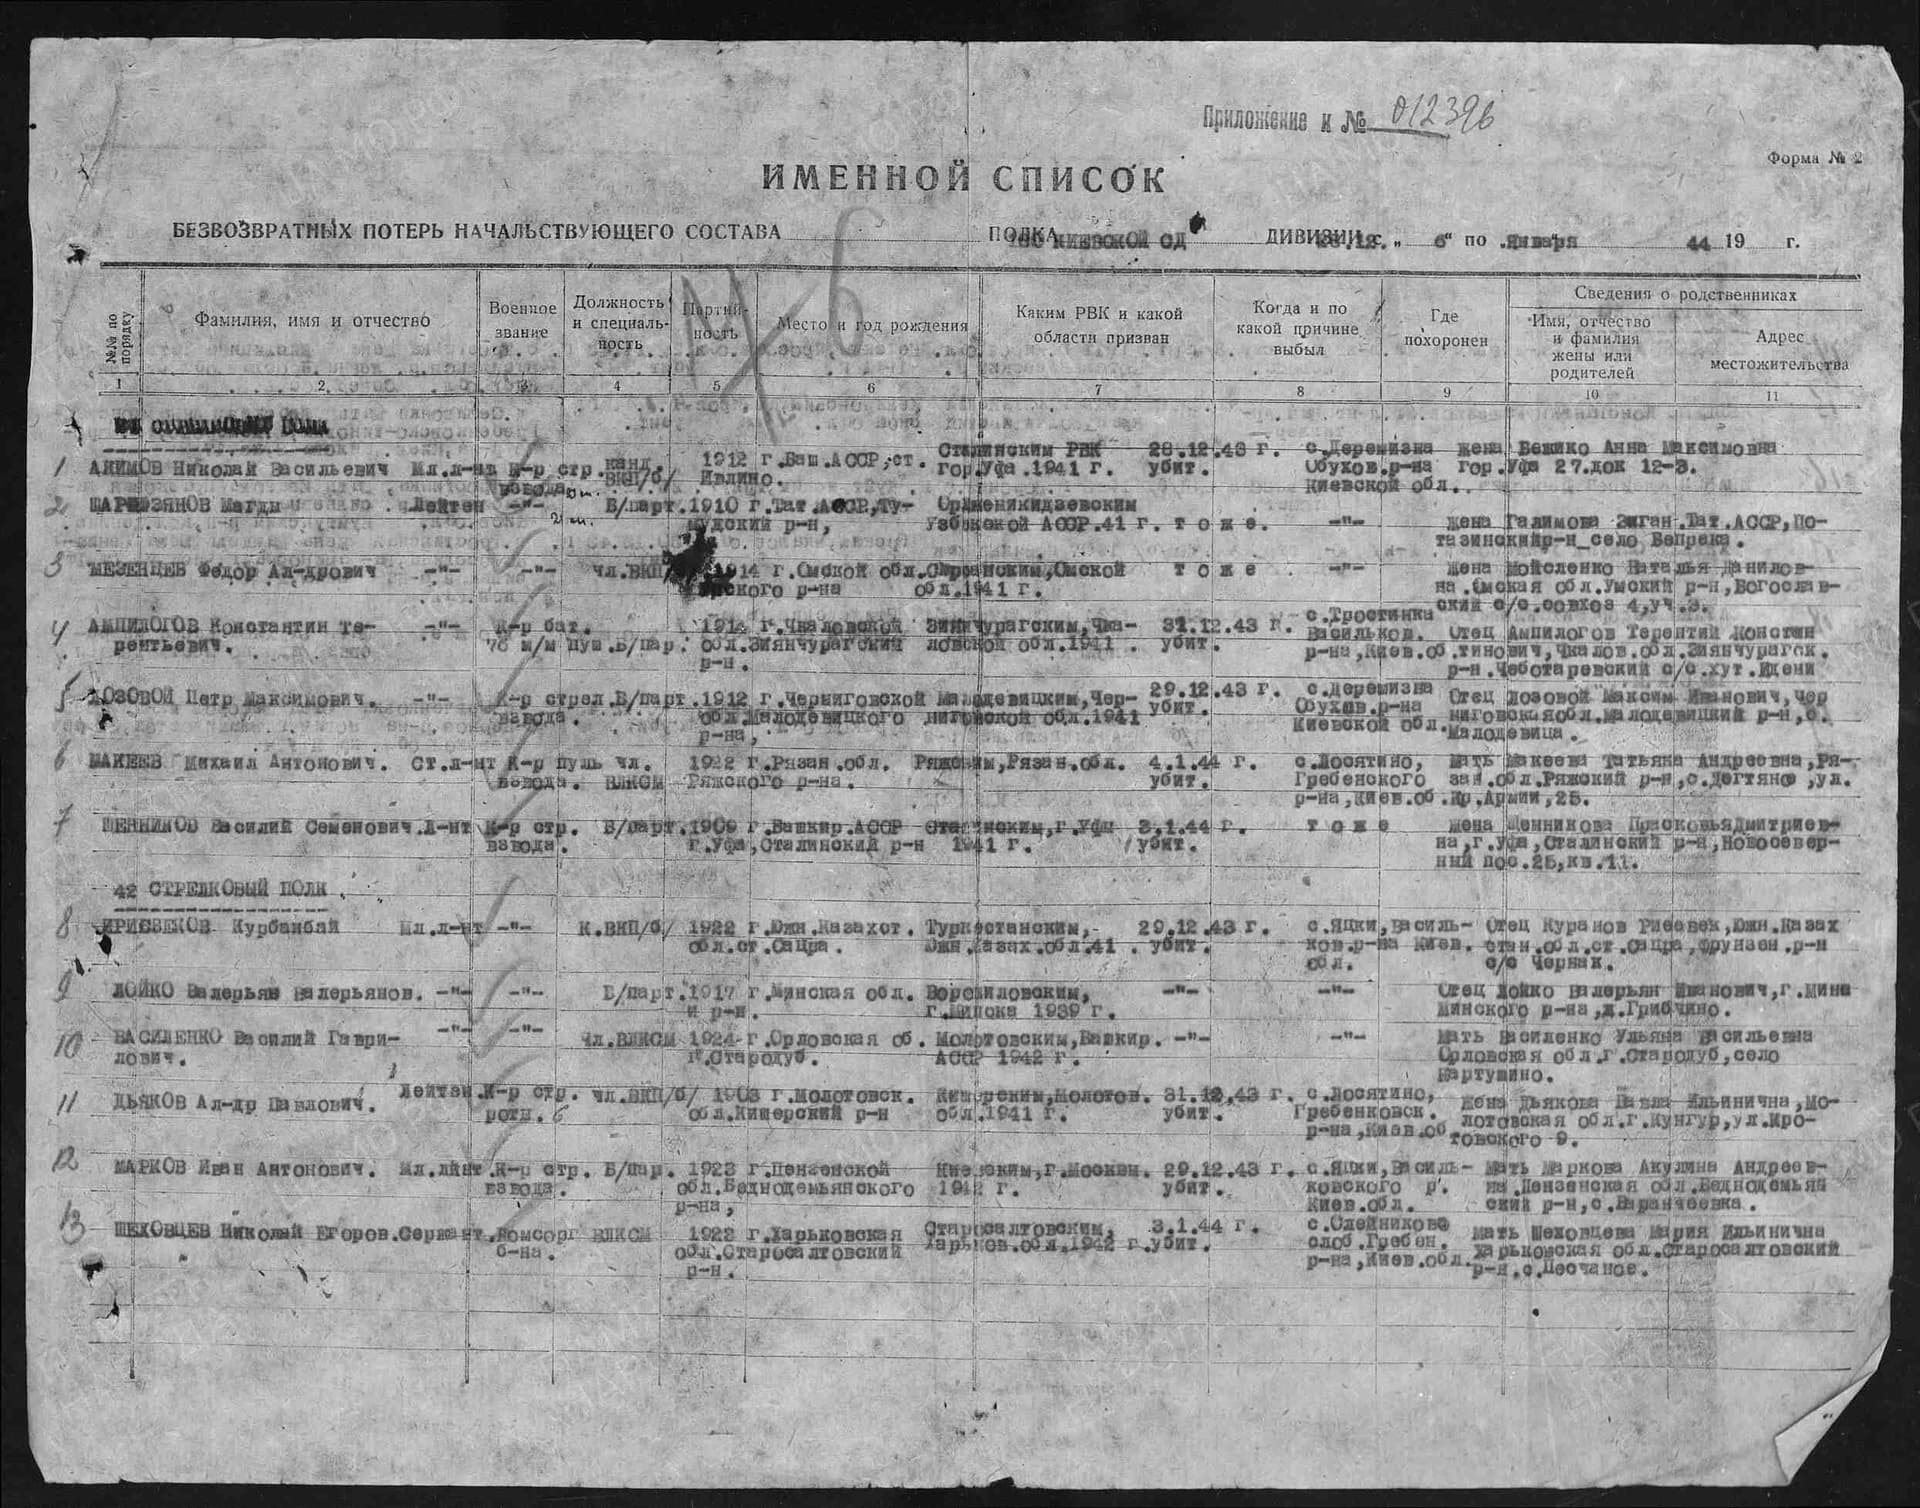 Приложение к № 012396
Форма № 2
ИМЕННОЙ СПИСОК
БЕЗВОЗВРАТНЫХ ПОТЕРЬ НАЧАЛЬСТВУЮЩЕГО СОСТАВА ПОЛКА КИЕВСКОЙ СД ДИВИЗИИ " 6" по января 44 19 г.
№№ по порядку
Фамилия, имя и отчество
Военное звание
Должность и специальность
Партийность
Место и год рождения
Каким РВК и какой области призван
Когда и по какой причине выбыл
Где похоронен
Сведения о родственниках
Имя, отчество и фамилия жены или родителей
Адрес местожительства
1 2 3 4 5 6 7 8 9 10 11
№ 6
Сталинским РВК 28.12.43 г. с.Деремизна жена Бешко Анна Максимовна
1 АКИМОВ Николай Васильевич Мл.л-нт К-р стр. канд. 1912 г.Баш.АССР,ст. гор.Уфа.1941 г. убит. Обухов.р-на гор.Уфа 27.док 12-3.
взвода ВКП/б/ Ивлино. Киевской обл.
2 Магды Лейтен -"- Б/парт.1910 г.Тат.АССР,Ту- Орджоникидзевским
р-н, Узбекской АССР.41 г. т о ж е. -"- жена Галимова Зиган.Тат.АССР,По-
тазинскийр-н село
3 МЕЗЕНЦЕВ Федор Ал-дрович -"- -"- чл.ВКП 1914 г.Омской обл. Омской т о ж е -"- жена Мойсленко Наталья Данилов-
р-на обл.1941 г. на.Омская обл. р-н,Богослав-
ский с/с.совхоз 4,уч.3.
4 АМПИЛОГОВ Константин Те- -"- К-р бат. 1914 г.Чкаловской Зиянчурагским,Чка- 31.12.43 г. с.Тростинка
рентьевич. 76 м/м пуш.Б/пар. обл.Зиянчурагский ловской обл.1941 . убит. Васильков. Отец Ампилогов Терентий Констан
р-н. р-на,Киев.об.тинович,Чкалов.обл.Зиянчурагск.
р-н.Чеботаревский с/с.хут.
5 ЛОЗОВОЙ Петр Максимович. -"- К-р стрел.Б/парт.1912 г.Черниговской Малодевицким,Чер- 29.12.43 г. с.Деремизна Отец Лозовой Максим Иванович,Чер
взвода. обл.Малодевицкого ниговской обл.1941 убит. Обухов.р-на ниговскаяобл.Малодевицкий р-н,с.
р-на, Киевской обл.Малодевица.
6 МАКЕЕВ Михаил Антонович. Ст.л-нт К-р пуль чл. 1922 г.Рязан.обл. Ряжским,Рязан.обл. 4.1.44 г. с.Лосятино, Мать Макеева Татьяна Андреевна,Ря-
взвода. ВЛКСМ Ряжского р-на. убит. Гребенского зан.обл.Ряжский р-н,с.Дегтяное,ул.
р-на,Киев.об.Кр.Армии,25.
7 ШЕННИКОВ Василий Семенович.Л-нт К-р стр. Б/парт.1909 г.Башкир.АССР Сталинским,г.Уфы 3.1.44 г. т о ж е жена Шенникова ПрасковьяДмитриев-
взвода. г.Уфа,Сталинский р-н 1941 г. убит. на,г.Уфа,Сталинский р-н,Новосевер-
ный пос.25,кв.11.
42 СТРЕЛКОВЫЙ ПОЛК
8 ИРИСБЕКОВ Курбанбай Мл.л-нт -"- К.ВКП/б/ 1922 г.Южн.Казахст. Туркестанским, 29.12.43 г. с.Яцки,Василь- Отец Куранов Рисбек,Южн.Казах
обл.ст.Сацра. Южн.Казах.обл.41 . убит. ков.р-на Киев. стан.обл.ст.Сацра,Фрунзен.р-н
обл. с/с Чернак.
9 ЛОЙКО Валерьян Валерьянов. -"- -"- Б/парт.1917 г.Минская обл. Ворошиловским, -"- -"- Отец Лойко Валерьян Иванович,г.Минс
и р-н. г.Минска 1939 г. Минского р-на,д.Грибчино.
10 ВАСИЛЕНКО Василий Гаври- -"- -"- Чл.ВЛКСМ 1924 г.Орловская об. Молотовским,Башкир. -"- -"- Мать Василенко Ульяна Васильевна
лович. г.Стародуб. АССР 1942 г. Орловская обл.г.Стародуб,село
Картушино.
11 ДЬЯКОВ Ал-др Павлович. Лейтэн.К-р стр. чл.ВКП/б/ 1903 г.Молотовск. Кишерским,Молотов. 31.12.43 г. с.Лосятино, Жена Дьякова Павла Ильинична,Мо-
роты. б обл.Кишерский р-н обл.1941 г. убит. Гребенковск. лотовская обл.г.Кунгур,ул.Кро-
р-на,Киев.об товского 9.
12 МАРКОВ Иван Антонович. Мл.лйнт.К-р стр. Б/пар. 1923 г.Пензенской Киевским,г.Москвы. 29.12.43 г. с.Яцки,Василь- Мать Маркова Акулина Андреев-
взвода. обл.Беднодемьянского 1942 г. убит. ковского р. на.Пензенская обл.Беднодемьян
р-на, Киев.обл. ский р-н,с.Варанчеевка.
13 ШЕХОВЦЕВ Николай Егоров.Сержант.Комсорг ВЛКСМ 1923 г.Харьковская Старосалтовским, 3.1.44 г. с.Олейникова Мать Шеховцева Мария Ильинична
б-на. обл.Старосалтовский Харьков.обл.1942 г.убит. слоб.Гребен. Харьковская обл.Старосалтовский
р-н. р-на,Киев.обл.р-н.с.Песчаное.